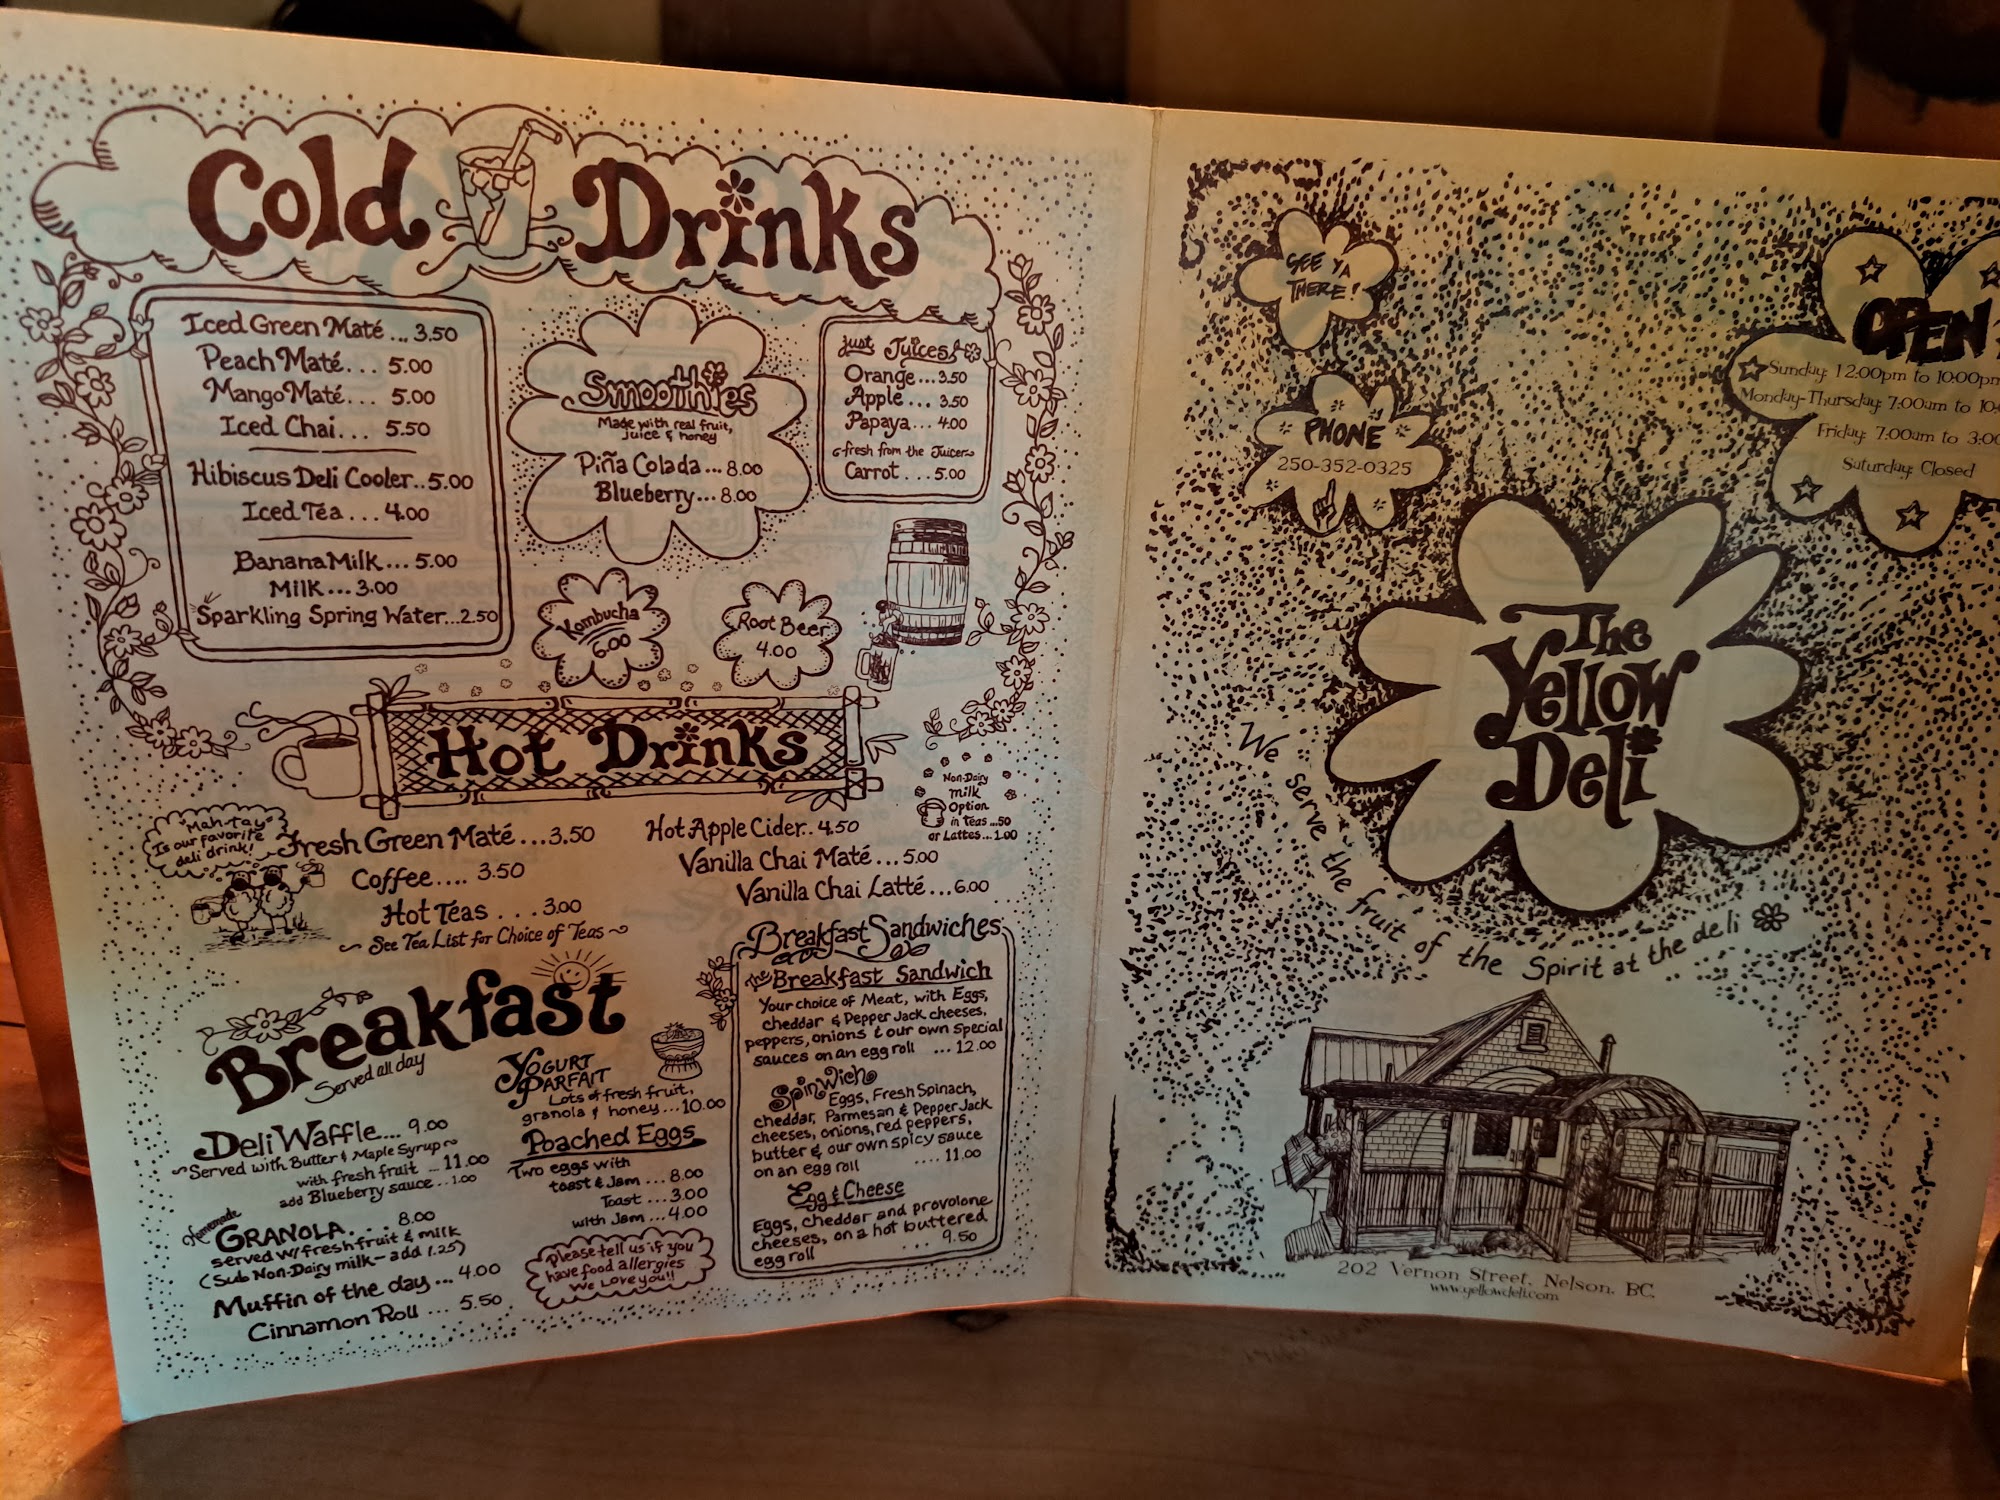 Cold Drinks
Iced Green Maté... 3.50
Peach Maté... 5.00
Mango Maté... 5.00
Iced Chai... 5.50
Hibiscus Deli Cooler..5.00
Iced Tea... 4.00
Banana Milk... 5.00
Milk... 3.00
Sparkling Spring Water...2.50
Smoothies
Made with real fruit,
juice & honey
Piña Colada... 8.00
Blueberry... 8.00
just Juices
Orange... 3.50
Apple... 3.50
Papaya... 4.00
fresh from the Juicer
Carrot... 5.00
Kombucha
6.00
Root Beer
4.00
Hot Drinks
"Mah-Tay"
Is our favorite
deli drink!
Fresh Green Maté...3.50
Coffee.... 3.50
Hot Teas... 3.00
~ See Tea List for Choice of Teas ~
Hot Apple Cider.. 4.50
Vanilla Chai Maté... 5.00
Vanilla Chai Latté... 6.00
Non-Dairy
Milk
Option
in Teas...50
or Lattes...1.00
Breakfast
Served all day
Deli Waffle.... 9.00
~Served with Butter & Maple Syrup~
with fresh fruit ... 11.00
add Blueberry sauce... 1.00
Homemade
Granola.... 8.00
served w/ fresh fruit & milk
(Sub Non-Dairy milk - add 1.25)
Muffin of the day... 4.00
Cinnamon Roll ... 5.50
Yogurt
Parfait
Lots of fresh fruit,
granola & honey...10.00
Poached Eggs
Two eggs with
toast & Jam... 8.00
Toast... 3.00
with Jam... 4.00
Please tell us if you
have food allergies
We Love you!!
Breakfast Sandwiches
The Breakfast Sandwich
Your choice of Meat, with Eggs,
cheddar & Pepper Jack cheeses,
peppers, onions & our own special
sauces on an egg roll ... 12.00
Spinwich
Eggs, Fresh Spinach,
cheddar, Parmesan & Pepper Jack
cheeses, onions, red peppers,
butter & our own spicy sauce
on an egg roll .... 11.00
Egg & Cheese
Eggs, cheddar and provolone
cheeses, on a hot buttered
egg roll ... 9.50
See ya
there!
Phone
250-352-0325
Open
Sunday: 12:00pm to 10:00pm
Monday-Thursday: 7:00am to 10:
Friday: 7:00am to 3:00
Saturday: Closed
The
Yellow
Deli
We serve the fruit of the Spirit at the deli
202 Vernon Street, Nelson, BC
www.yellowdeli.com